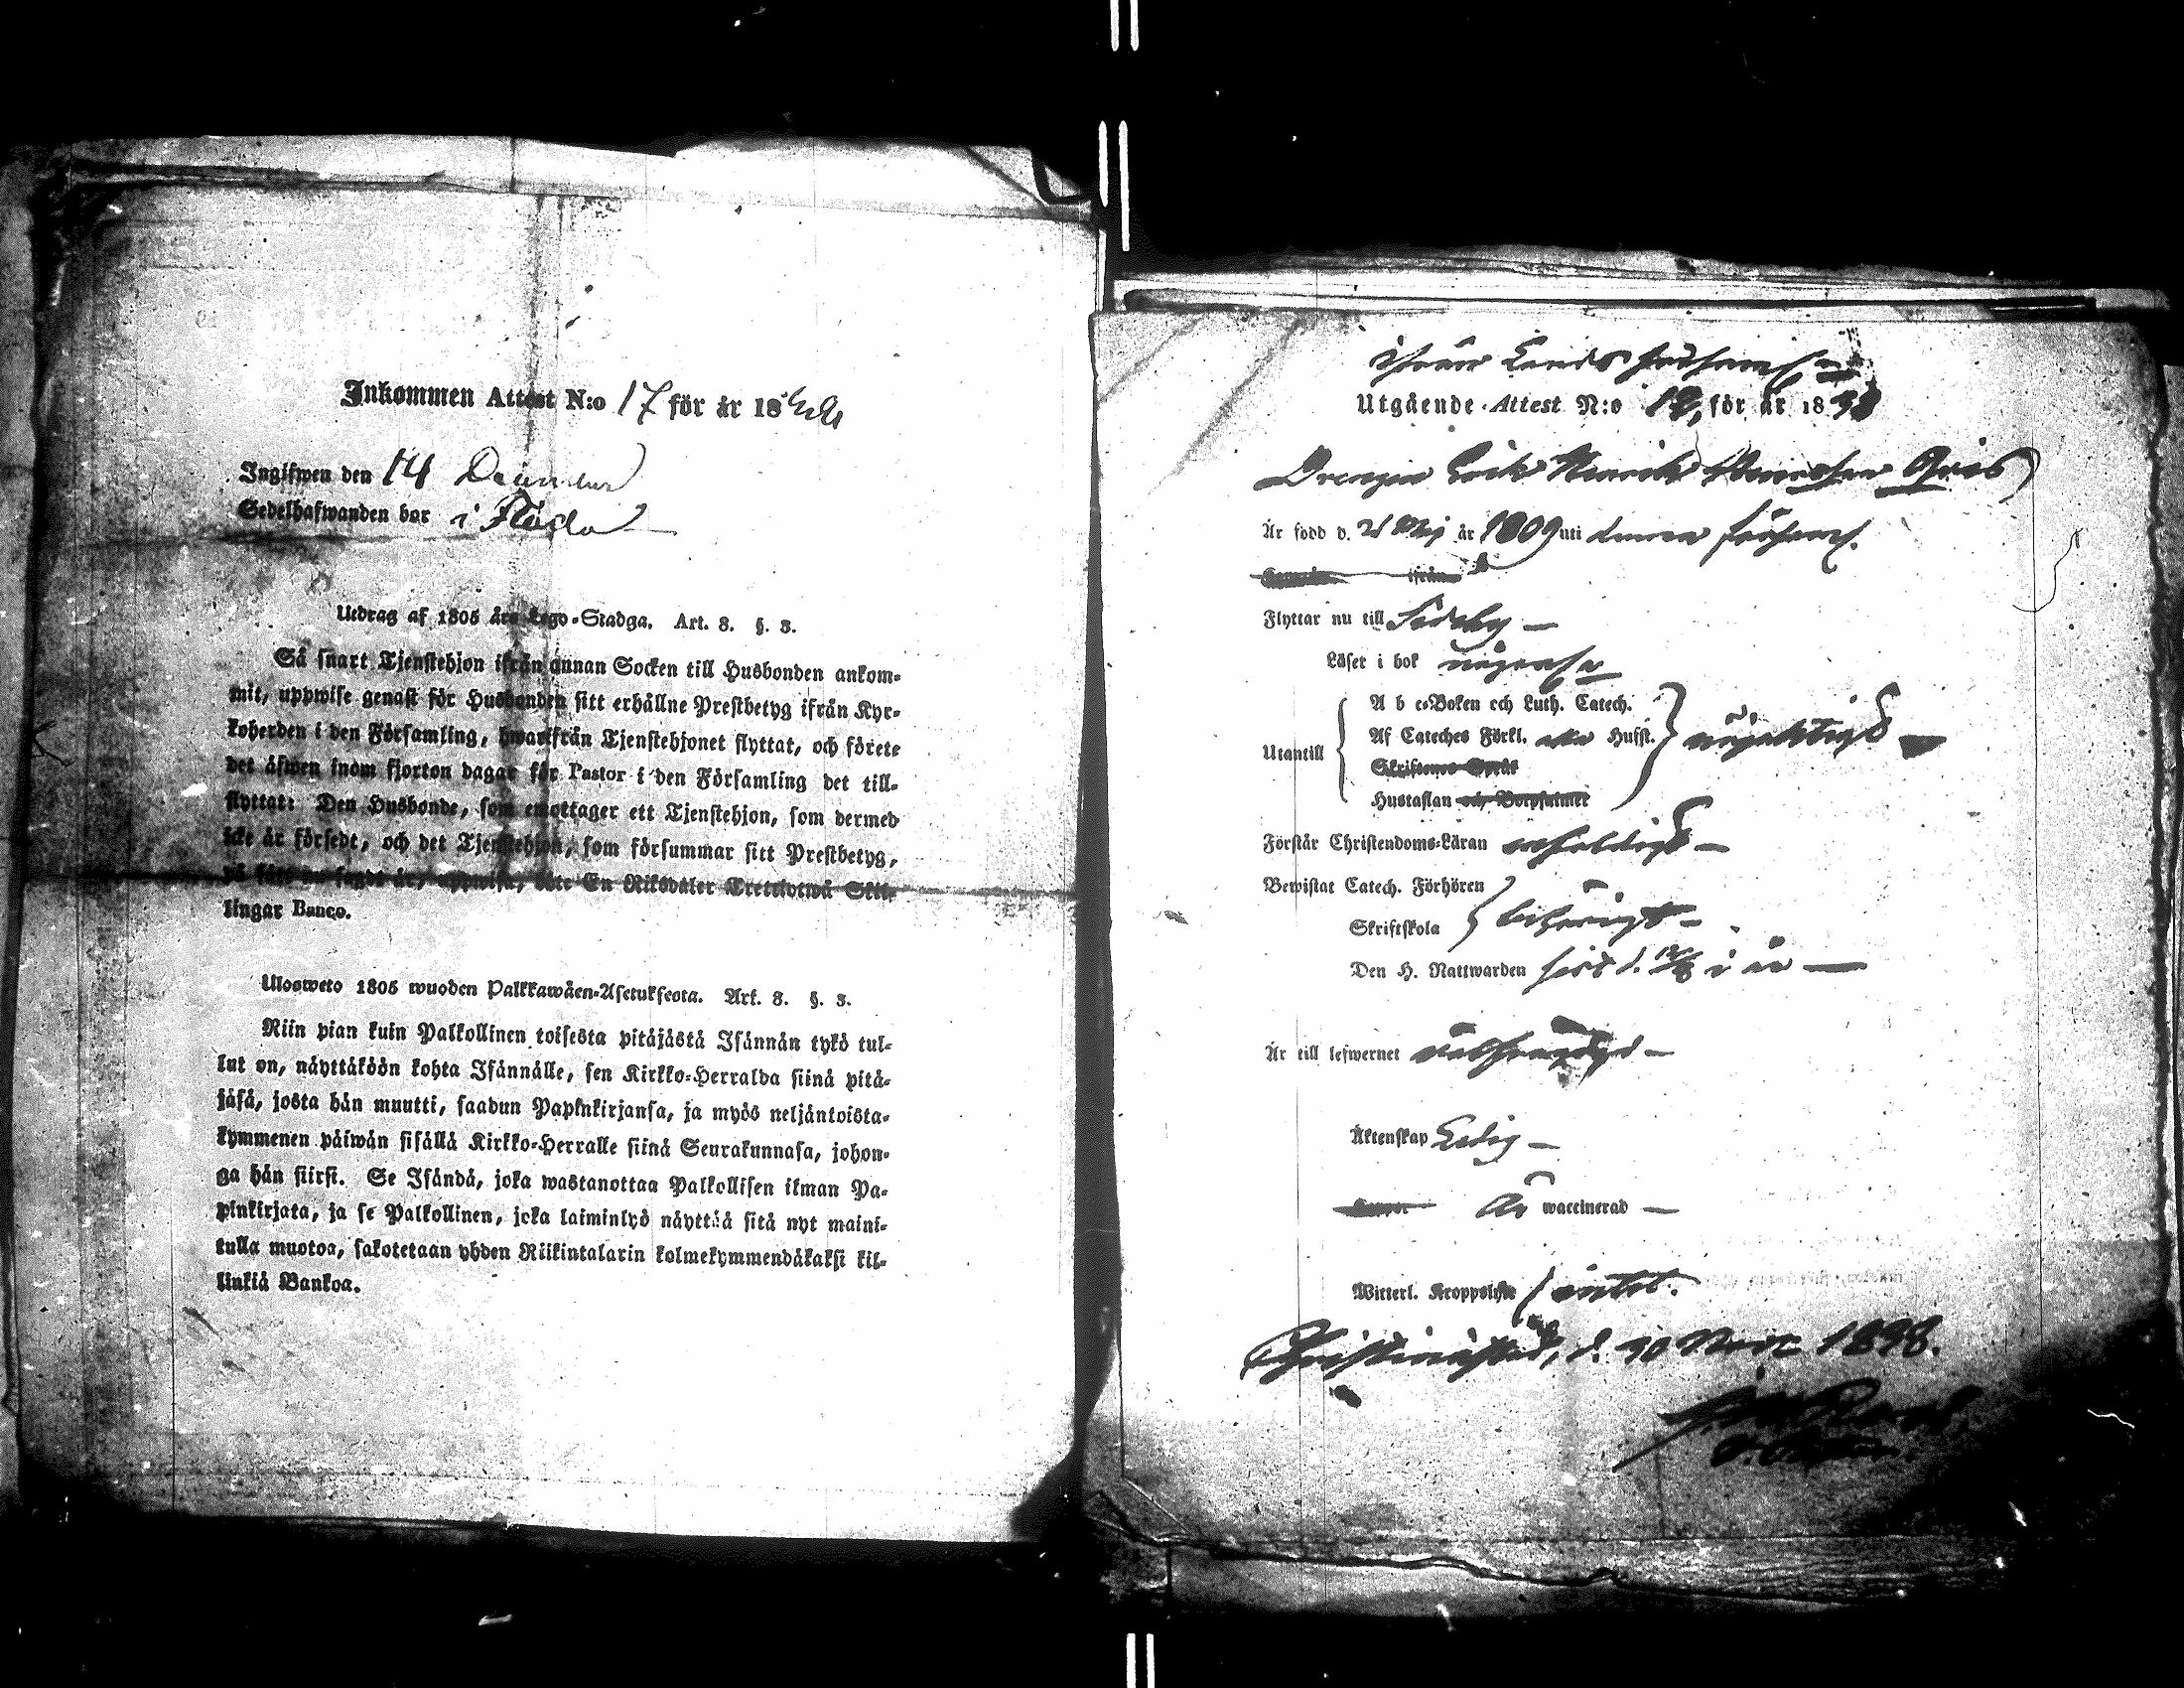 Inkommen Attest N:o 17 för år 18
Ingifwen den 14 December
Sedelhafwanden bor i
Utdrag af 1805 års Lego-Stadga. Art. 8. §. 3.
Så snart Tjenstehjon ifrån annan Socken till Husbonden ankom-
mit, uppwise genast för Husbonden sitt erhållne Prestbetyg ifrån Kyr-
koherden i den Församling, hwarifrån Tjenstehjonet flyttat, och förete
det äfwen inom fjorton dagar för Pastor i den Församling det till-
flyttat: Den Husbonde, som emottager ett Tjenstehjon, som dermed
icke är försedt, och det Tjenstehjon, som försummar sitt Prestbetyg,
på sätt nu sagdt är, uppwisa, böte En Riksdaler Tretiotwå Skil-
lingar Banco.
Ulosweto 1805 wuoden Palkkawäen-Asetuksesta. Art. 8. §. 3.
Niin pian kuin Palkollinen toisesta pitäjästä Isännän tykö tul-
lut on, näyttäköön kohta Isännälle, sen Kirkko-Herralda siinä pitä-
jäsä, josta hän muutti, saadun Papinkirjansa, ja myös neljäntoista-
kymmenen päiwän sisällä Kirkko-Herralle siinä Seurakunnasa, johon-
ga hän siirsi. Se Isändä, joka wastanottaa Palkollisen ilman Pa-
pinkirjata, ja se Palkollinen, joka laiminlyö näyttää sitä nyt maini-
tulla muotoa, sakotetaan yhden Riikintalarin kolmekymmendäkaksi kil-
linkiä Bankoa.
Lands församl
Utgående Attest N:o för år 18
Drengen Erik Henrik
Är född d. Maj år 1809 uti denna församl.
ifrån
Flyttar nu till Sideby
Läser i bok någorl
A b c-Boken och Luth. Catech.
Utantill Af Cateches Förkl. Husft.
Skriftenes Språk
Hustaflan och Botpsalmer
Förstår Christendoms-Läran
Bewistat Catech. Förhören
Skriftskola behörigt
Den H. Nattwarden sist d. i år
Är till lefwernet
Äktenskap Ledig
Är waccinerad
Witterl. Kroppslyte intet.
Christinæstad, d. 30 Nov. 1838.